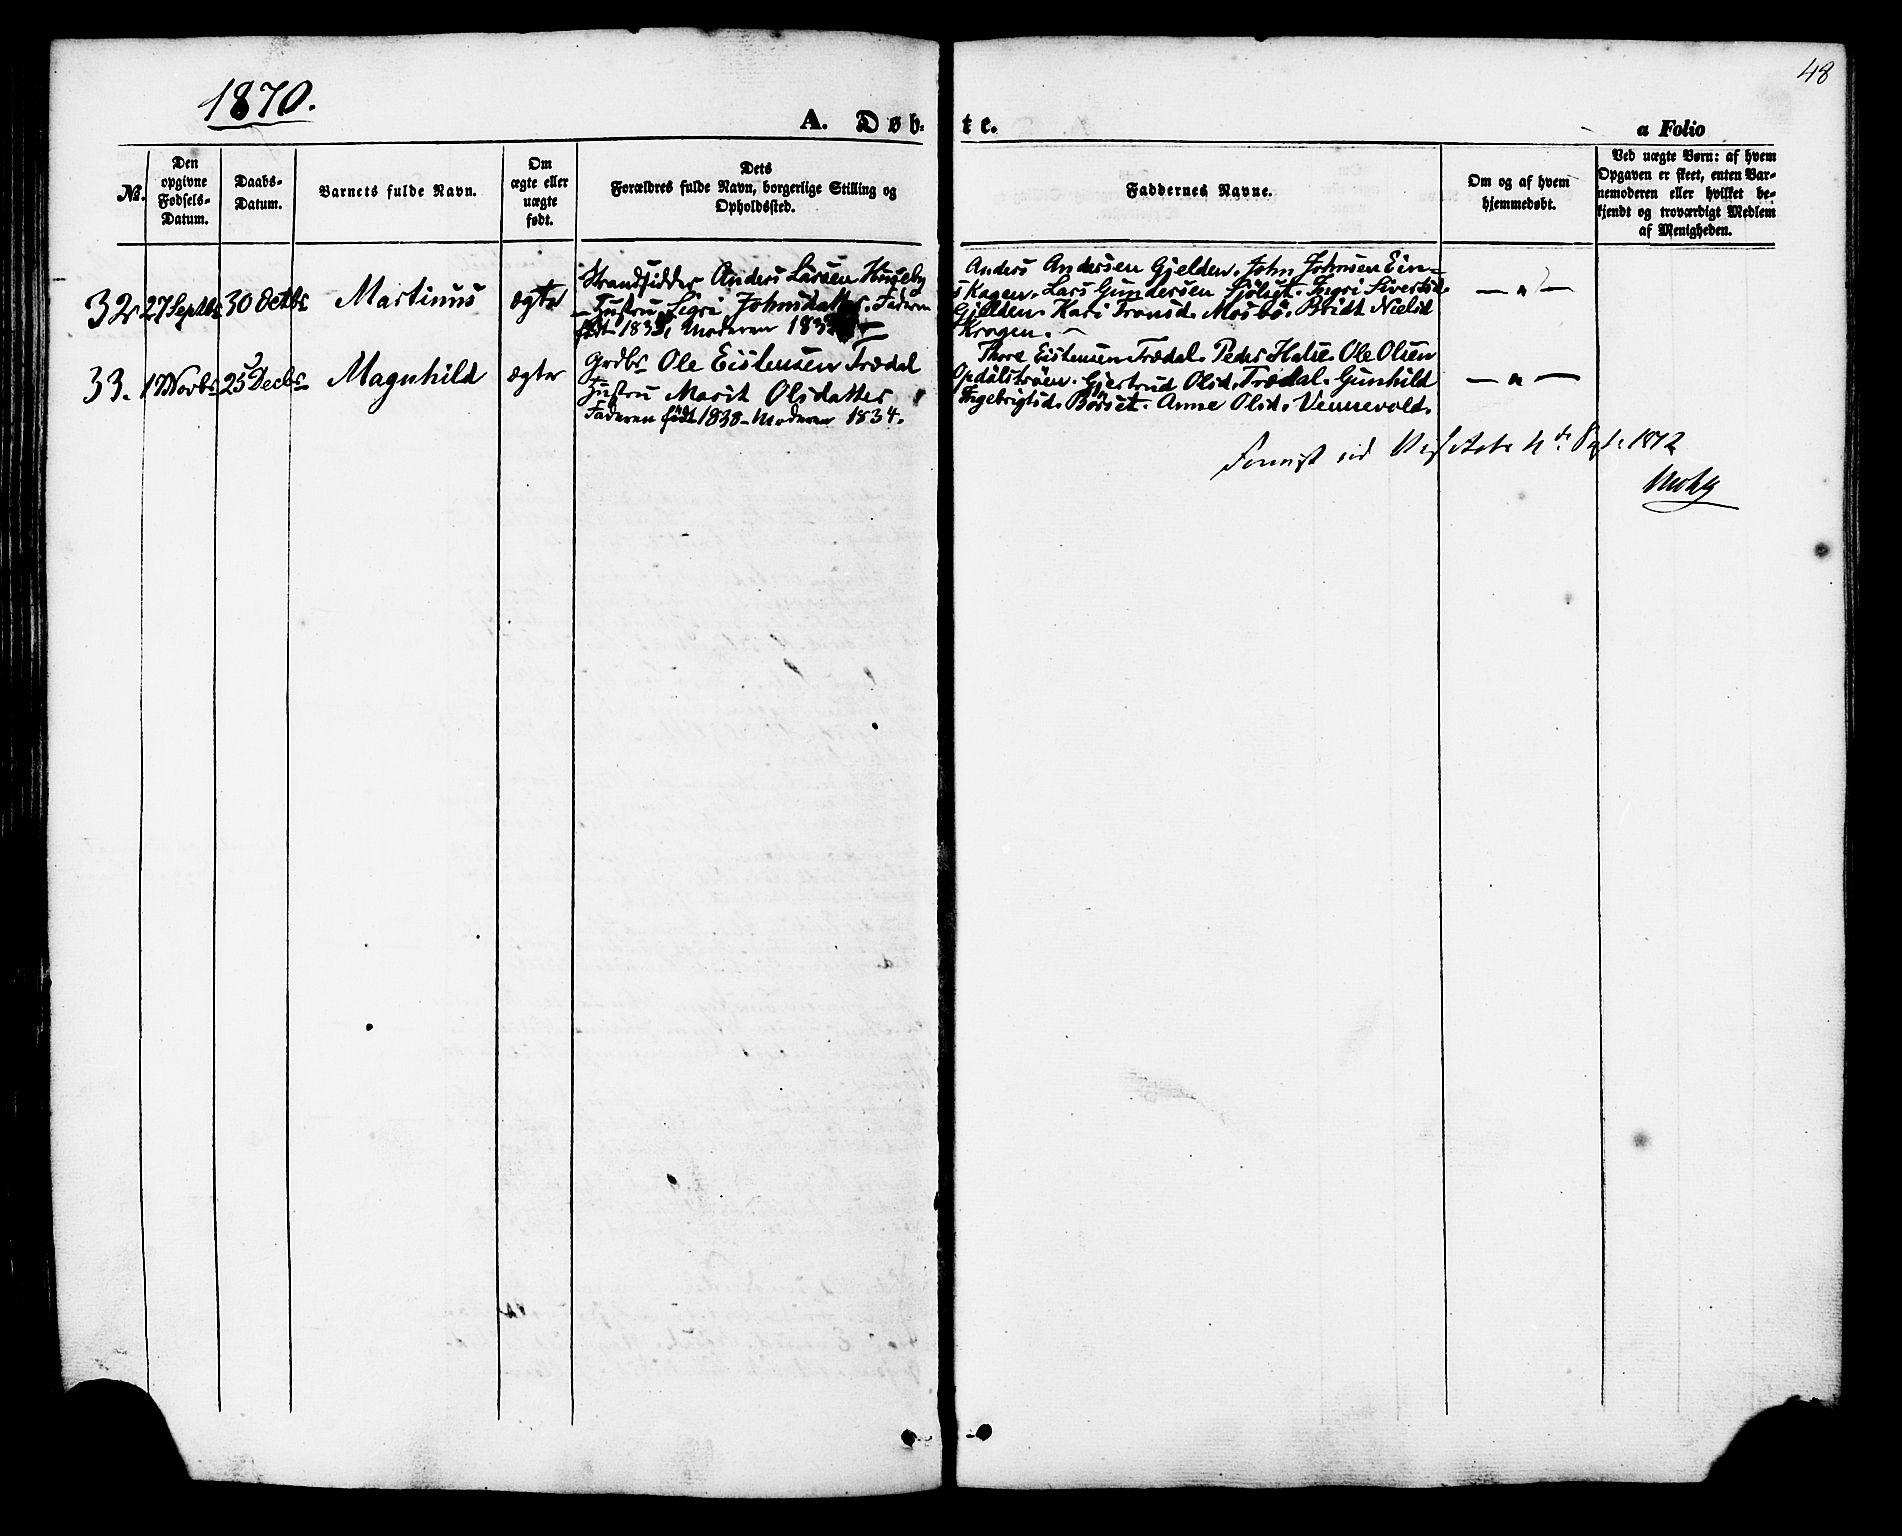 1870.
48
A. Døb-
te.
a Folio
No.
Den opgivne Fødsels-Datum.
Daabs-Datum.
Barnets fulde Navn.
Om ægte eller uægte født.
Dets Forældres fulde Navn, borgerlige Stilling og Opholdssted.
Faddernes Navne.
Om og af hvem hjemmedøbt.
Ved uægte Børn: af hvem Opgaven er skeet, enten Barnemoderen eller hvilket bekjendt og troværdigt Medlem af Menigheden.
32
27 Septbr
30 Octbr
Martinus
ægte
Strandsidder Anders Larsen Huseby
Hustru Sigri Johnsdatter. Faderen
født 1833, Moderen
Anders Andersen Gjelden. John Johnsen Ein-
skagen. Lars Gundersen Sjöligt. Ingri Sivertsd.
Gjelden. Kari Tronsd. Mosbø. Bridt Nielsd
Krogen.
— " —
33.
17 Novbr
25 Decbr
Magnhild
ægte
Grdbr Ole Eistensen Trædal
Hustru Marit Olsdatter
Faderen født 1838 - Moderen 1834.
Thore Eistensen Trædal. Peder Halse Ole Olsen
Opdalstrøen. Gjertrud Olsd. Trædal. Gunhild
Ingebrigtsd. Börset. Anne Olsd. Vennevold.
— " —
1872